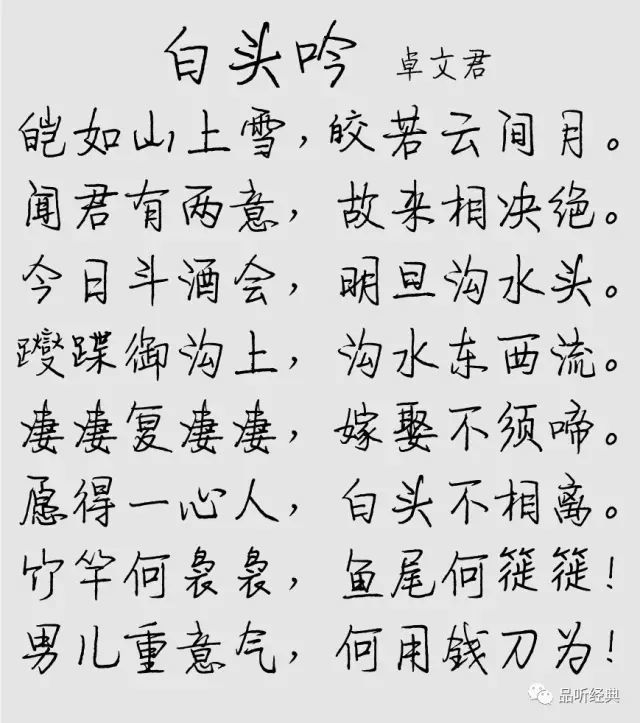 白头吟 卓文君
皑如山上雪，皎若云间月。
闻君有两意，故来相决绝。
今日斗酒会，明旦沟水头。
躞蹀御沟上，沟水东西流。
凄凄复凄凄，嫁娶不须啼。
愿得一心人，白头不相离。
竹竿何袅袅，鱼尾何簁簁！
男儿重意气，何用钱刀为！
品听经典